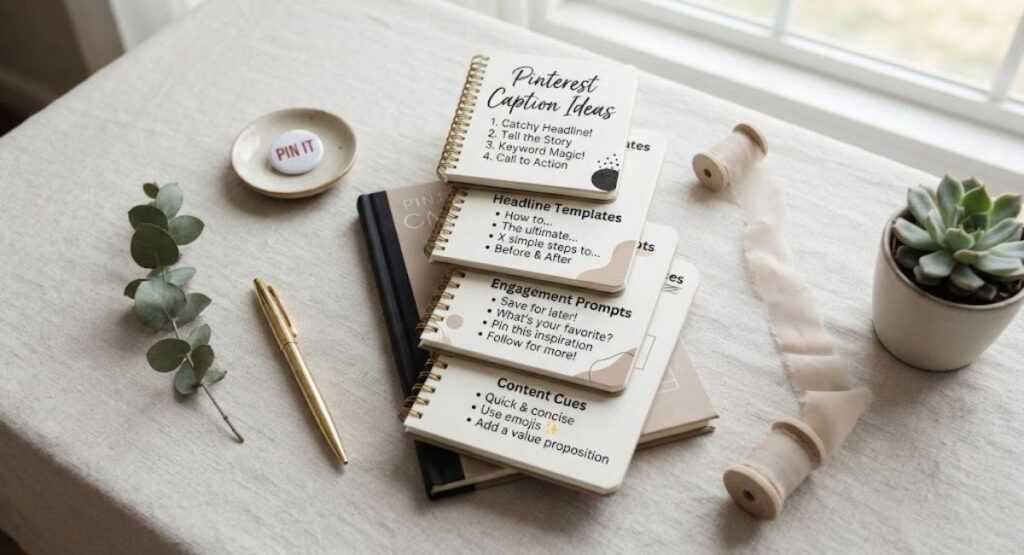 PIN IT
Pinterest
Caption Ideas
1. Catchy Headline!
2. Tell the Story
3. Keyword Magic!
4. Call to Action
Headline Templates
• How to...
• The ultimate...
• X simple steps to...
• Before & After
Engagement Prompts
• Save for later!
• What's your favorite?
• Pin this inspiration
• Follow for more!
Content Cues
• Quick & concise
• Use emojis ✨
• Add a value proposition